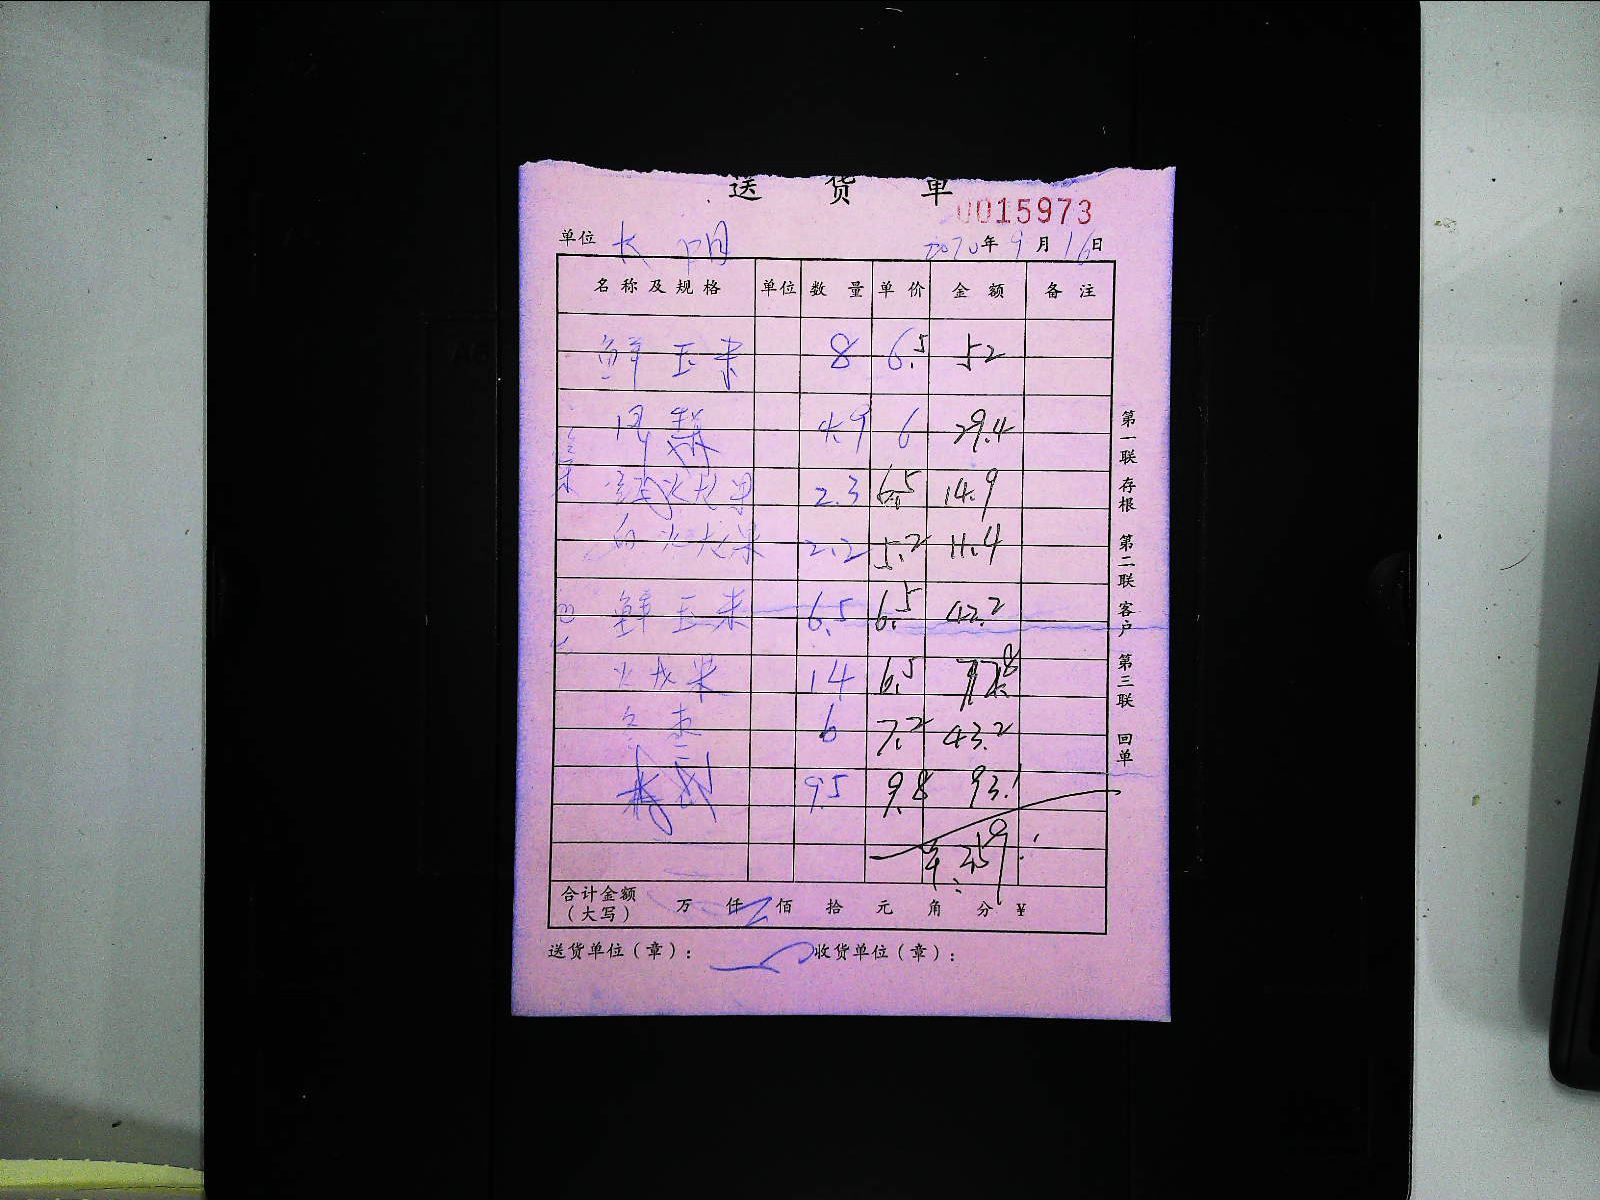 送 货 单
0015973
单位 长阳 2020年9月16日
名称及规格 单位 数量 单价 金额 备注
鲜玉米 8 6.5 52
4.9 6 29.4
火龙果 2.3 6.5 14.9
白火龙果 2.2 5.2 11.4
鲜玉米 6.5 6.5 42.2
14 6.5
6 7.2 43.2
9.5 9.8 93.1
359.1
合计金额（大写） 万 仟 佰 拾 元 角 分 ¥
送货单位（章）： 收货单位（章）：
第一联 存根 第二联 客户 第三联 回单